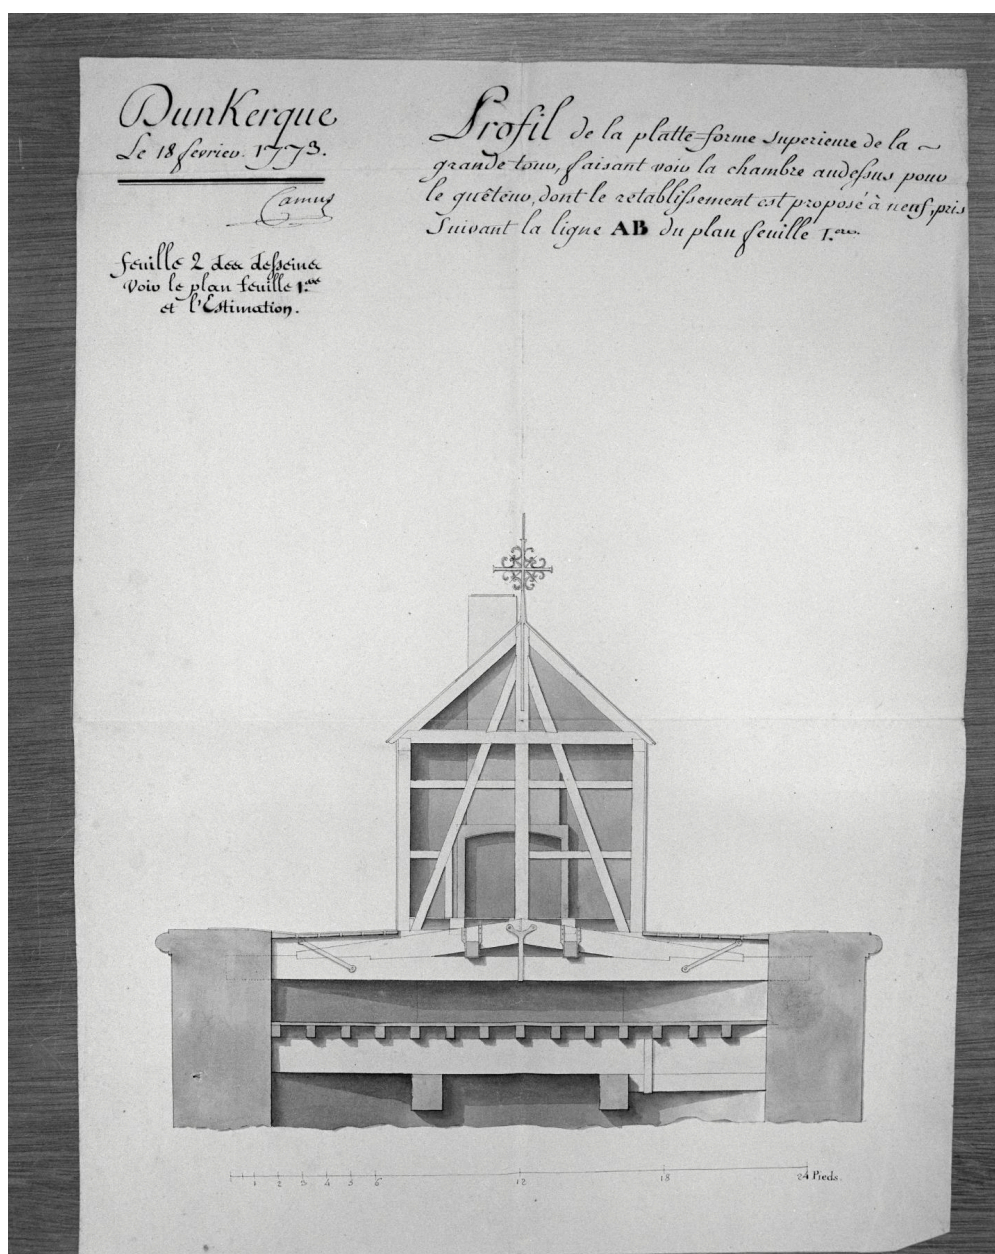 Dunkerque
Le 18 fevrier 1773.
Camus
feuille 2 des desseins
Voir le plan feuille 1.ere
et l'Estimation.
Profil de la platte-forme superieure de la ~
grande tour, faisant voir la chambre audessus pour
le quêteur, dont le rétablissement est proposé à neuf, pris
Suivant la ligne AB du plan feuille 1.ere
1 2 3 4 5 6 12 18 24 Pieds.